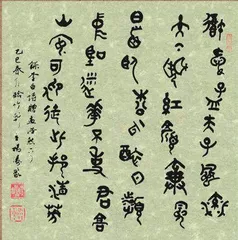 吾愛孟夫子風流
天下聞紅顏棄軒冕
白首臥松雲醉月頻
中聖迷花不事君高
山安可仰徒此揖清芬
錄李白詩贈孟浩然
乙巳春